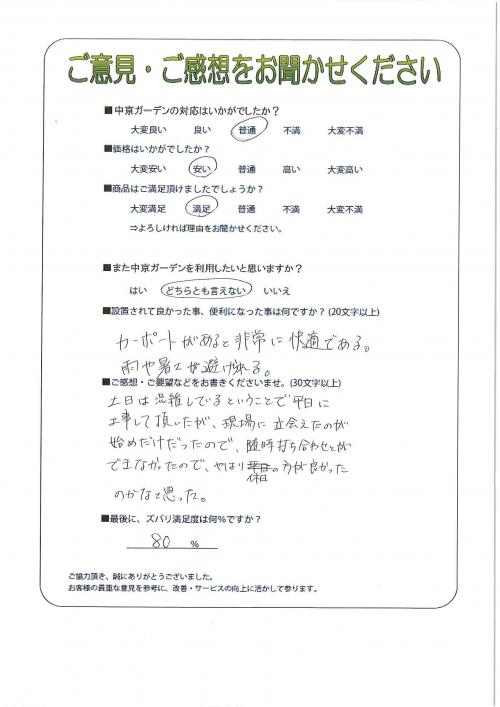 ご意見・ご感想をお聞かせください
■中京ガーデンの対応はいかがでしたか？
大変良い 良い 普通 不満 大変不満
■価格はいかがでしたか？
大変安い 安い 普通 高い 大変高い
■商品はご満足頂けましたでしょうか？
大変満足 満足 普通 不満 大変不満
⇒よろしければ理由をお聞かせください。
■また中京ガーデンを利用したいと思いますか？
はい どちらとも言えない いいえ
■設置されて良かった事、便利になった事は何ですか？(20文字以上)
カーポートがあると非常に快適である。
雨や暑さが避けれる。
■ご感想・ご要望などをお書きくださいませ。(30文字以上)
土日は混雑しているということで平日に
工事して頂したが、現場に立会えたのが
始めだけだったので、随時打ち合わせとかが
できなかったので、やはり休日の方が良かった
のかなと思った。
■最後に、ズバリ満足度は何％ですか？
80 ％
ご協力頂き、誠にありがとうございました。
お客様の貴重な意見を参考に、改善・サービスの向上に活かして参ります。